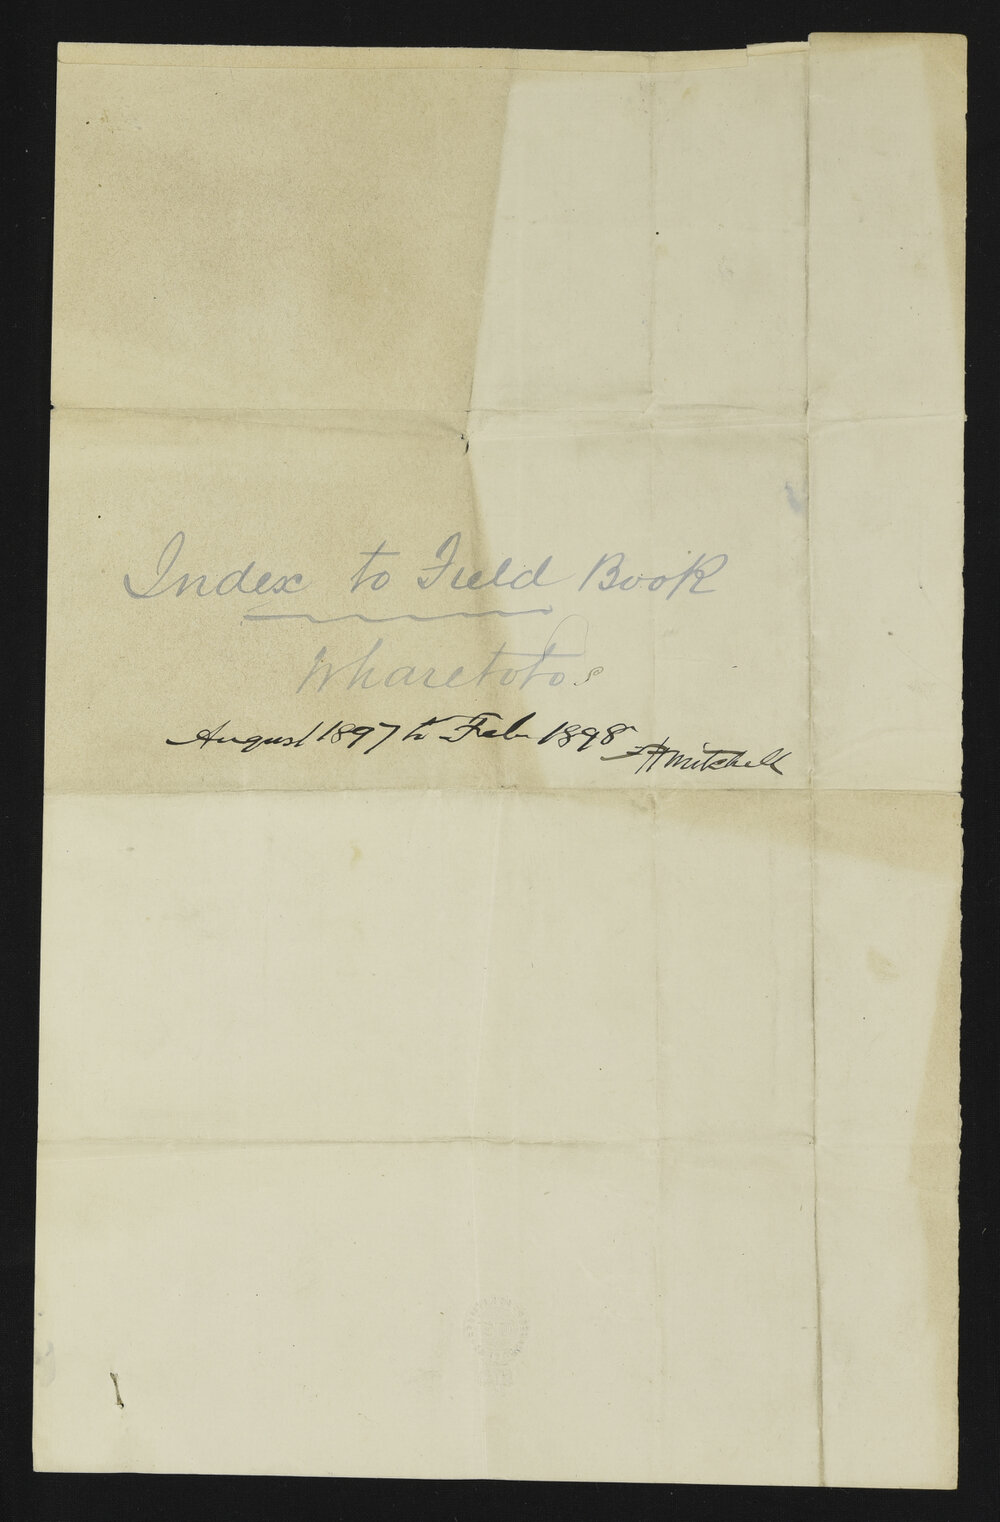 Index to Field Book
Wharetoto
August 1897 to Feb 1898
FHMitchell